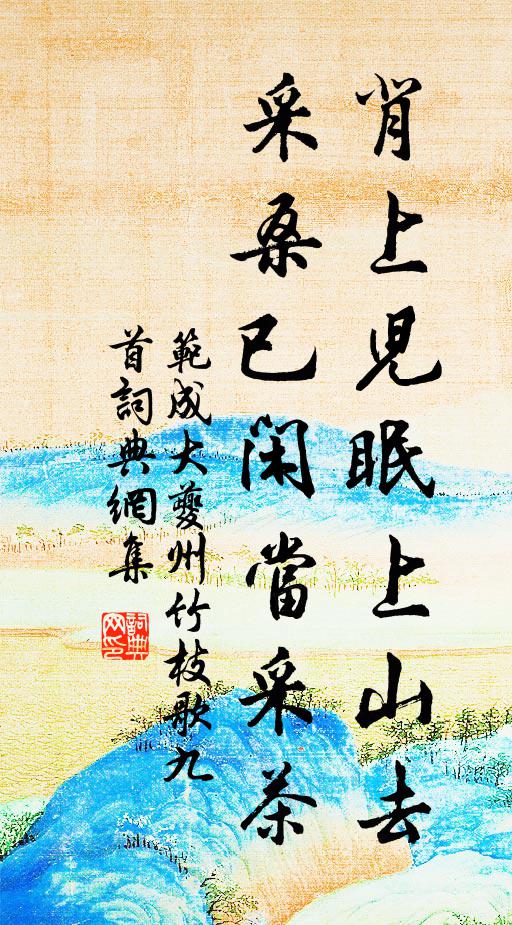 背上兒眠上山去
采桑已閑當采茶
範成大夔州竹枝歌九
首詞典網集
詞典
网印